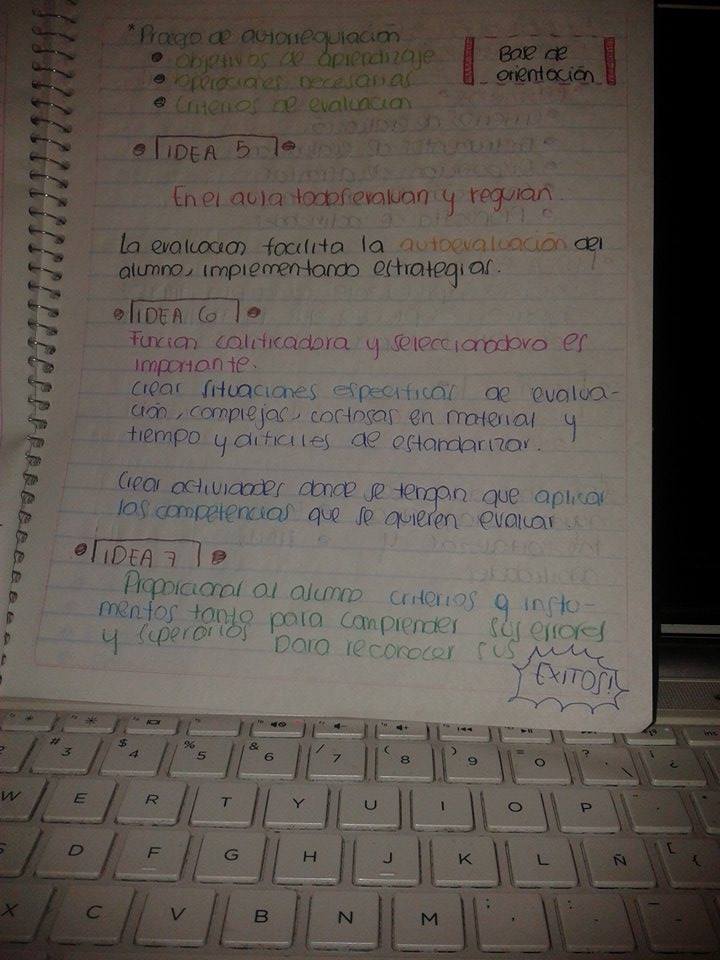 * Proceso de autorregulación
• Objetivos de aprendizaje
• Operaciones necesarias
• Criterios de evaluación
Base de
orientación
• IDEA 5 •
En el aula todos evaluan y regulan.
La evaluación facilita la autoevaluación del
alumno, implementando estrategias.
• IDEA 6 •
Función calificadora y seleccionadora es
importante.
Crear situaciones especificas de evalua-
ción, complejas, costosas en material y
tiempo y dificiles de estandarizar.
Crear actividades donde se tengan que aplicar
las competencias que se quieren evaluar.
• IDEA 7 •
Proporcional al alumno criterios q instu-
mentos tanto para comprender sus errores
y superarlos para reconocer sus
EXITOS!
# 3 $ 4 % 5 & 6 / 7 ( 8 ) 9 = 0 ? ' ¿ ¡
W E R T Y U I O P
S D F G H J K L Ñ [ {
X C V B N M ; , : .